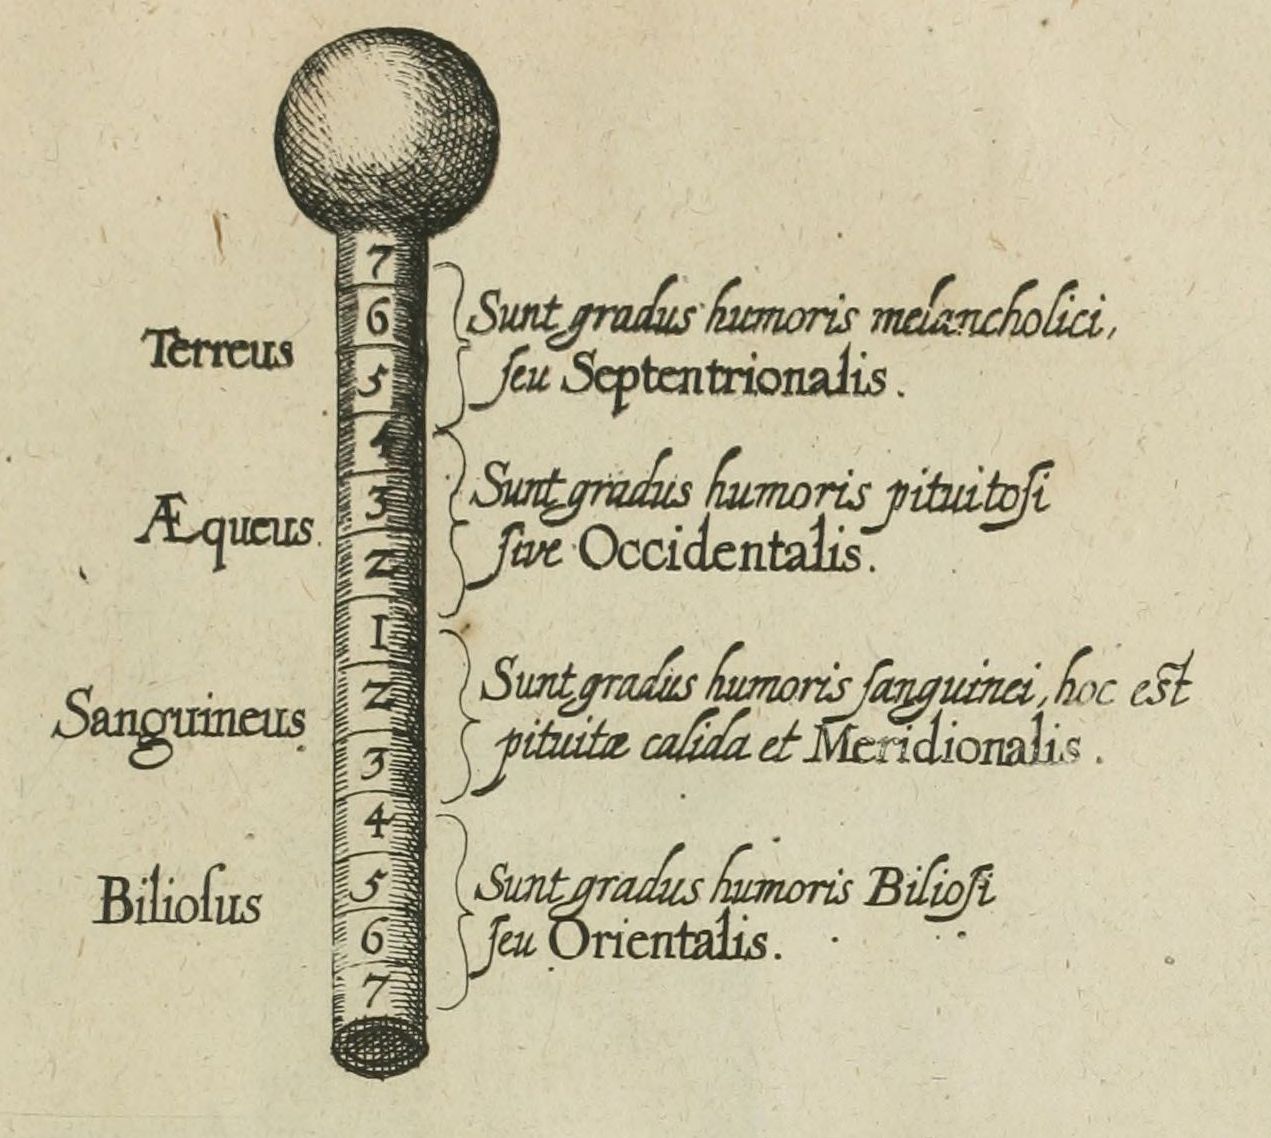 7
6
Terreus
5
Sunt gradus humoris melancholici,
ſeu Septentrionalis.
4
3
Æqueus.
2
Sunt gradus humoris pituitoſi
ſive Occidentalis.
1
2
Sanguineus
3
Sunt gradus humoris ſanguinei, hoc est
pituitæ calida et Meridionalis.
4
5
Bilioſus
6
7
Sunt gradus humoris Bilioſi
ſeu Orientalis.